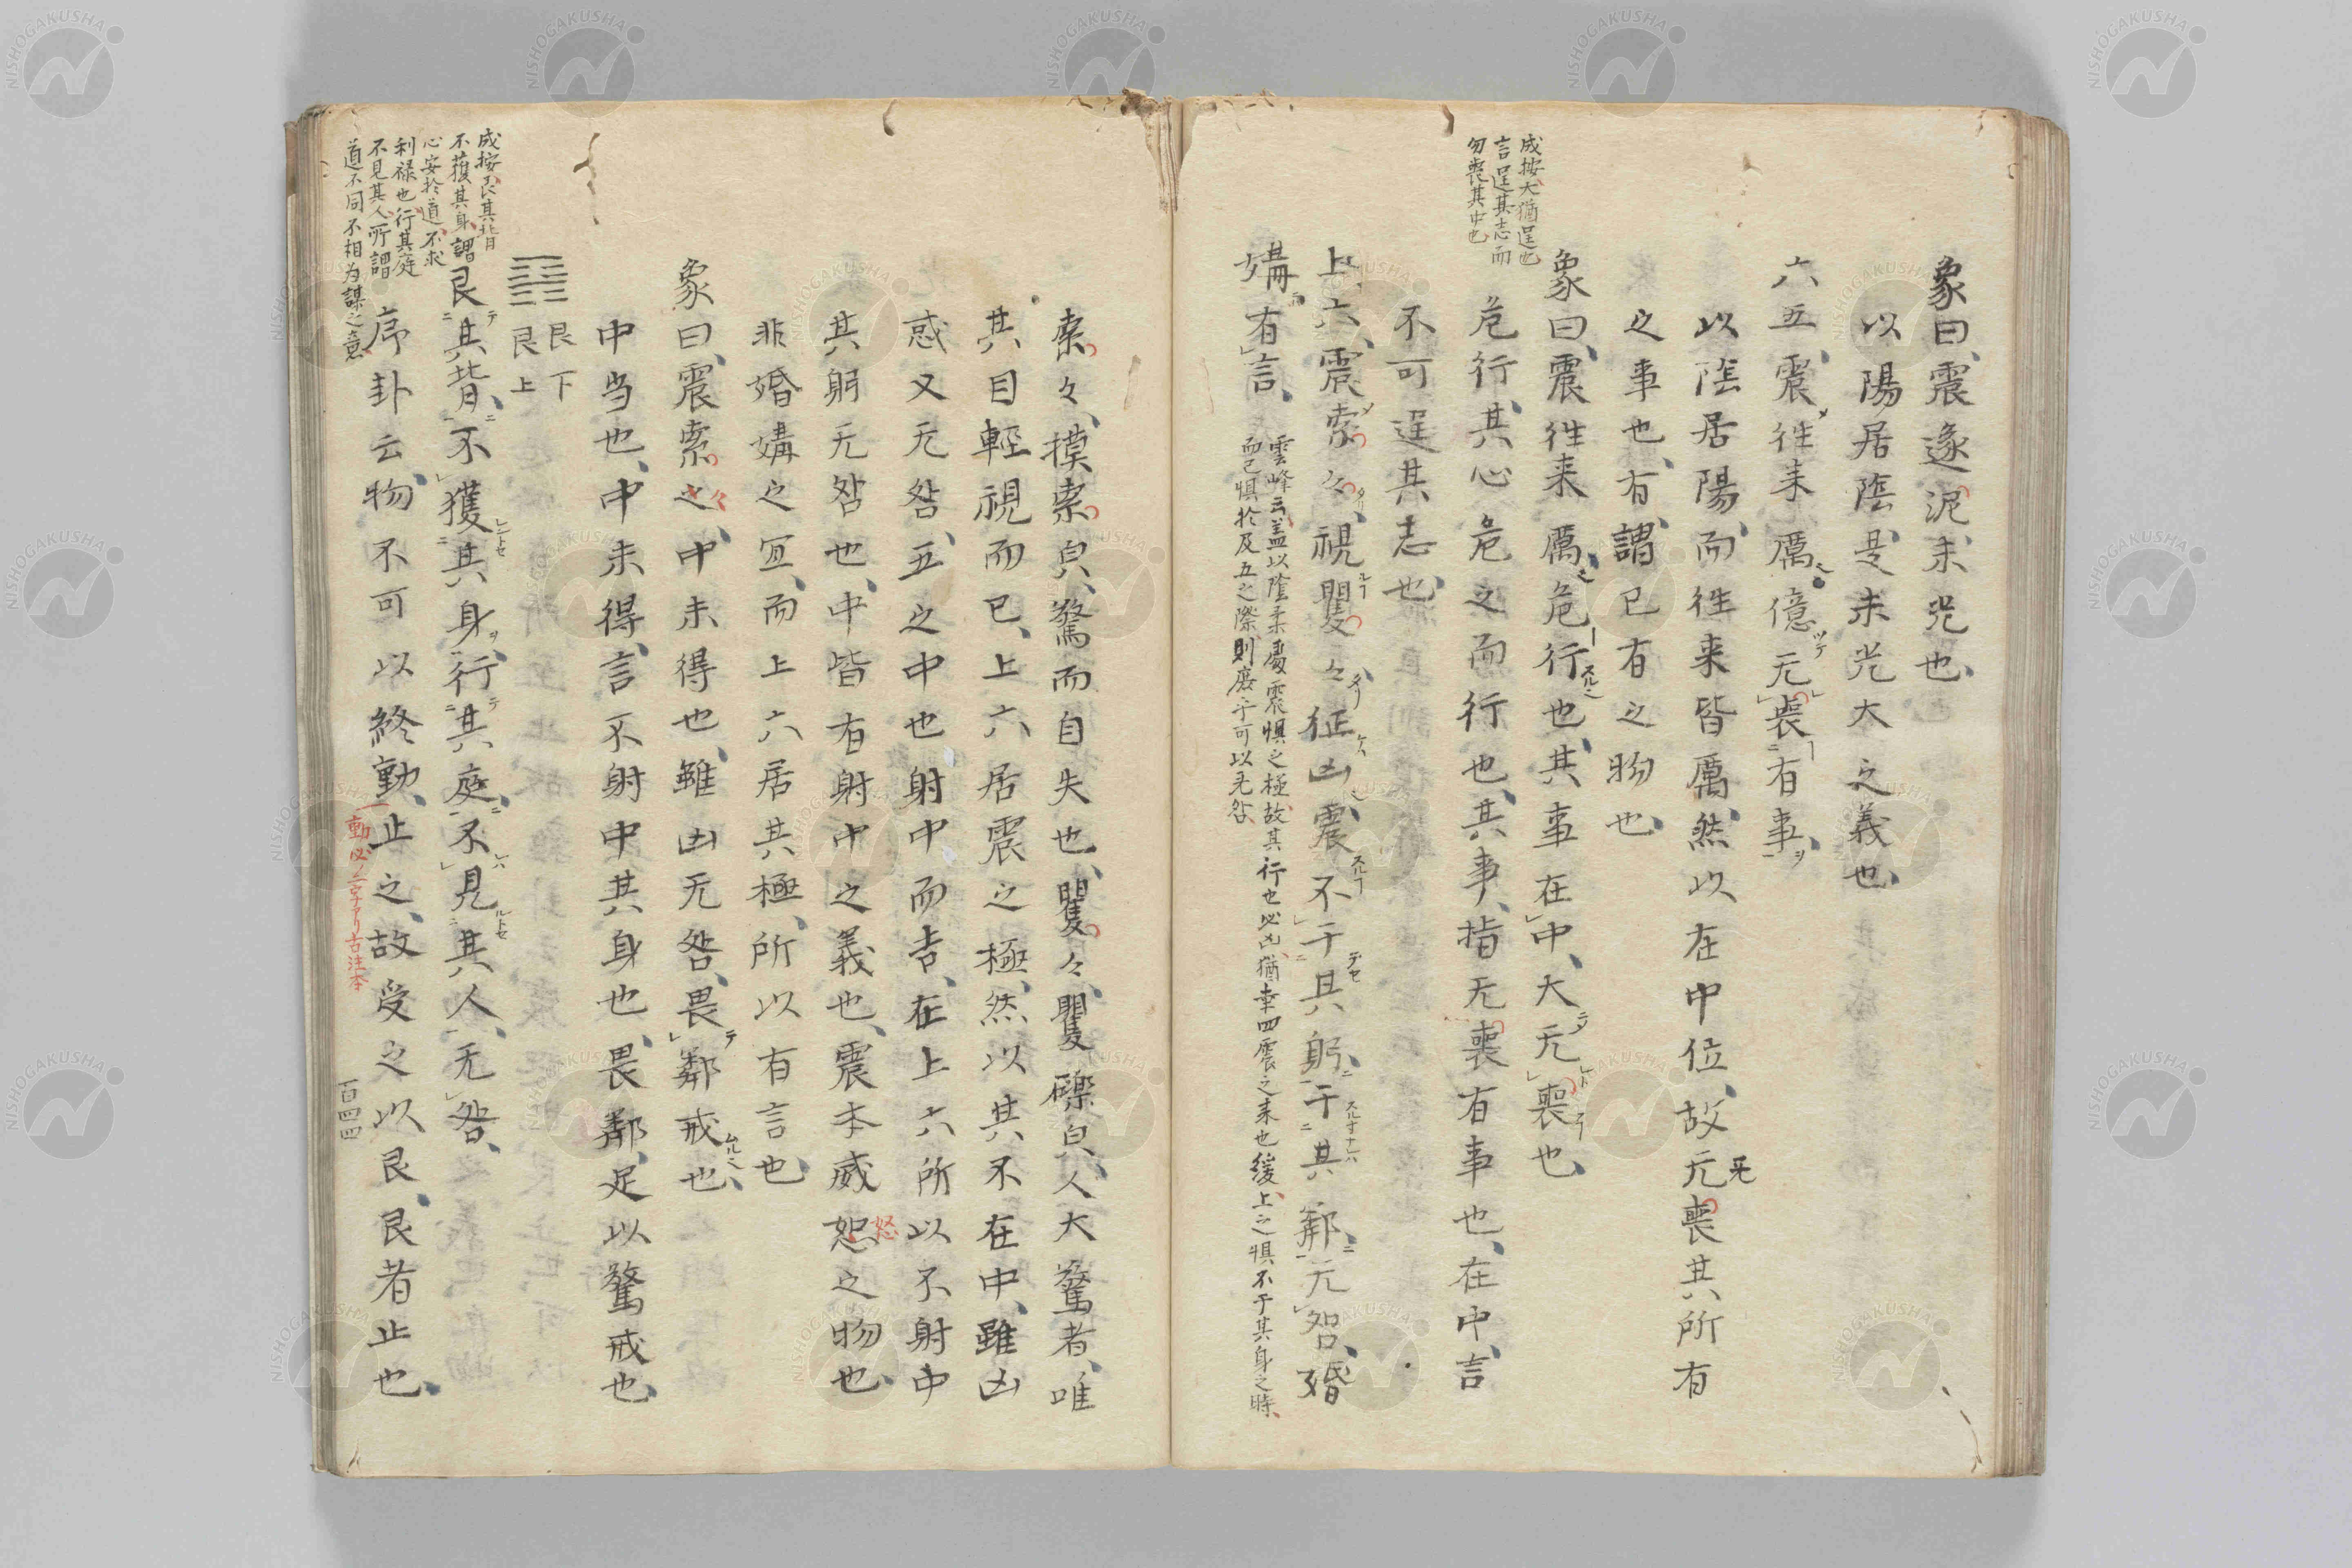 象曰、震遂泥、未光也、
以陽居陰、是未光大之義也、
六五、震往来厲、億无喪有事、
以陰居陽、而往来皆厲、然以在中位、故无喪其所有
之事也、有、謂已有之物也、
成按、大猶逞也
言逞其志而
勿喪其中也
象曰、震往来厲、危行也、其事在中、大无喪也、
危行、其心危之而行也、其事、指无喪有事也、在中、言
不可逞其志也、
上六、震索々、視矍々、征凶、震不于其躬、于其鄰、无咎、婚
媾有言、
雲峰云、盖以陰柔處震惧之極、故其行也必凶、猶幸四震之来也緩、上之惧、不于其身之時、
而已惧於及五之際、則庶乎可以无咎
索々、摸索皃、驚而自失也、矍々、矍礫皃、人大驚者、唯
其目輕視而已、上六居震之極、然以其不在中、雖凶
惑又无咎、五之中也、射中而𠮷、在上六所以不射中
其躬无咎也、中皆有射中之義也、震本威恕之物也、
怒
非婚媾之冝、而上六居其極、所以有言也、
象曰、震索之、中未得也、雖凶无咎、畏鄰戒也、
々
中当也、中未得、言不射中其身也、畏鄰、足以驚戒也、
艮下
艮上
成按、艮其背
不獲其身、謂
心安於道、不求
利禄也、行其庭
不見其人、所謂
道不同不相为謀之意
艮其背、不獲其身、行其庭、不見其人、无咎、
序卦云、物不可以終動、止之、故受之以艮、艮者止也、
動必ノ二字アリ古注本
百四四